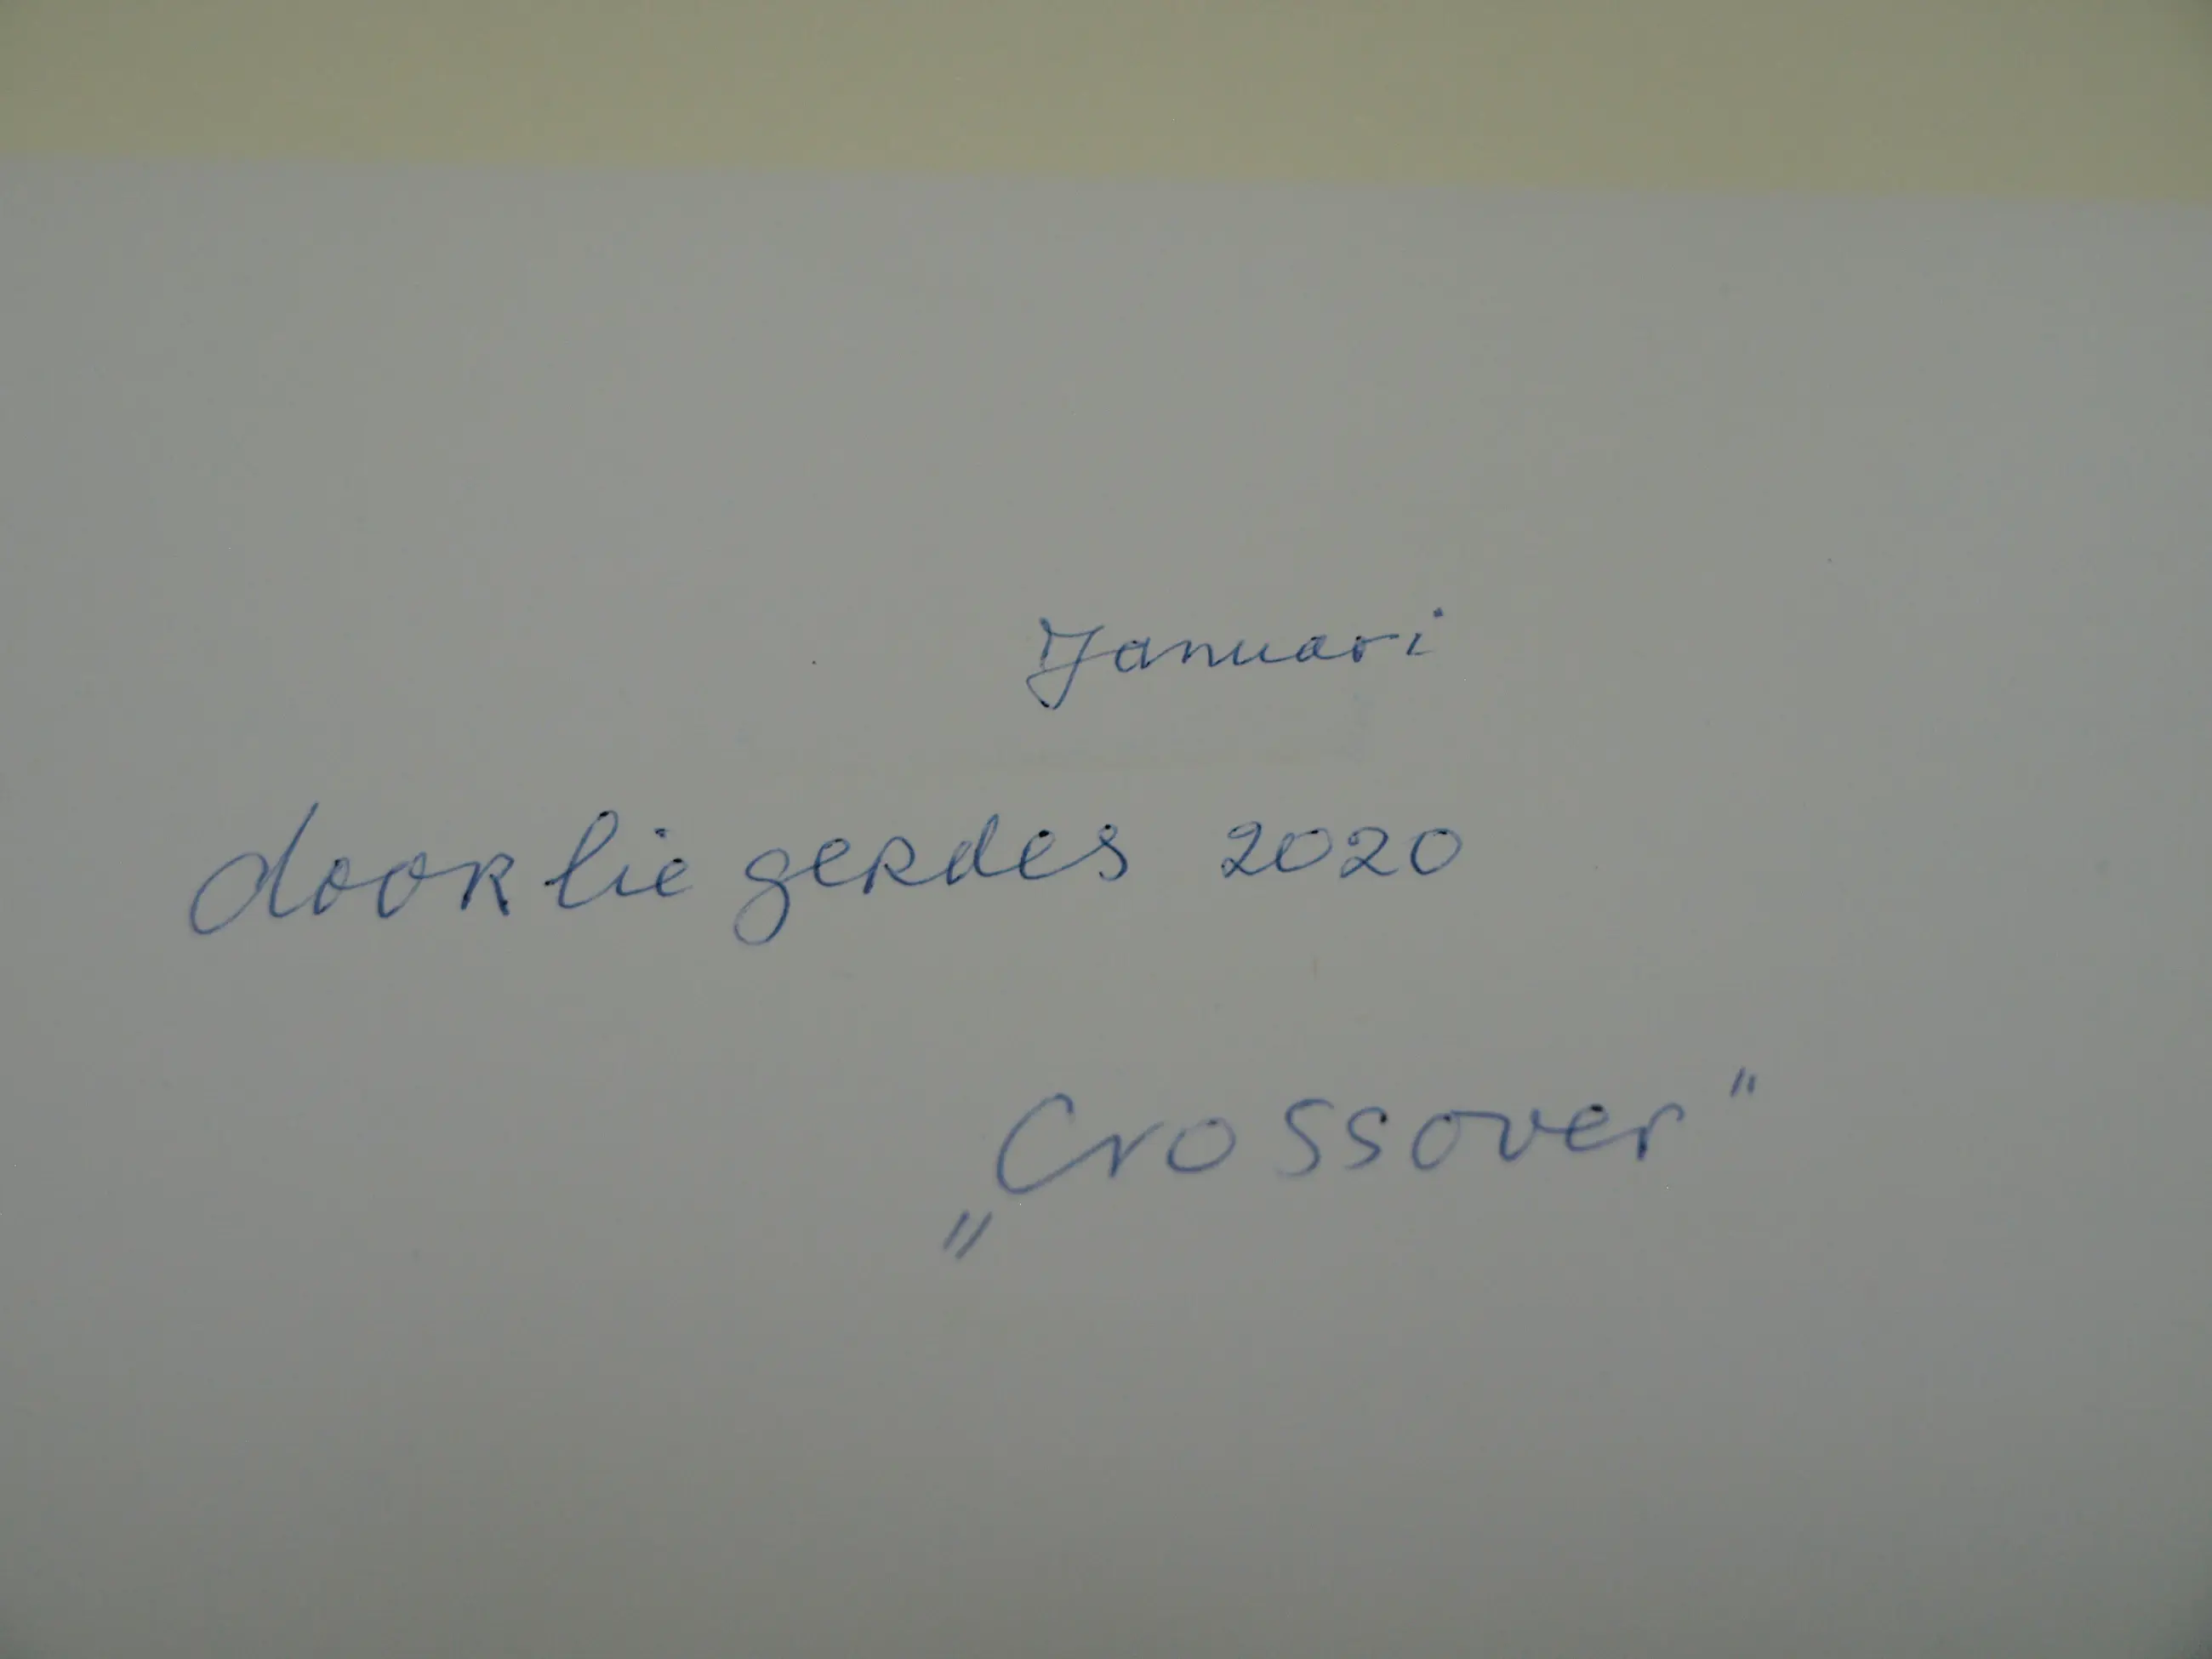 Januari
door lie gerdes 2020
„Crossover"